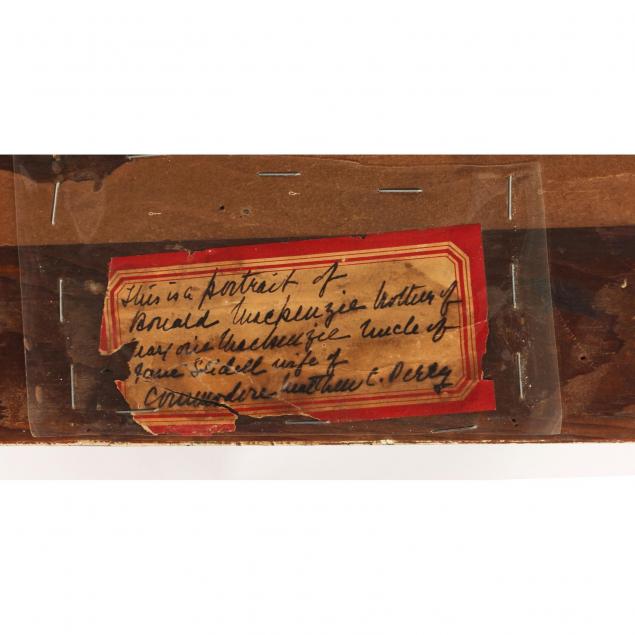 This is a portrait of
Donald Mackenzie brother of
Marjorie Mackenzie Uncle of
Jane Slidell wife of
Commodore Matthew C. Perry